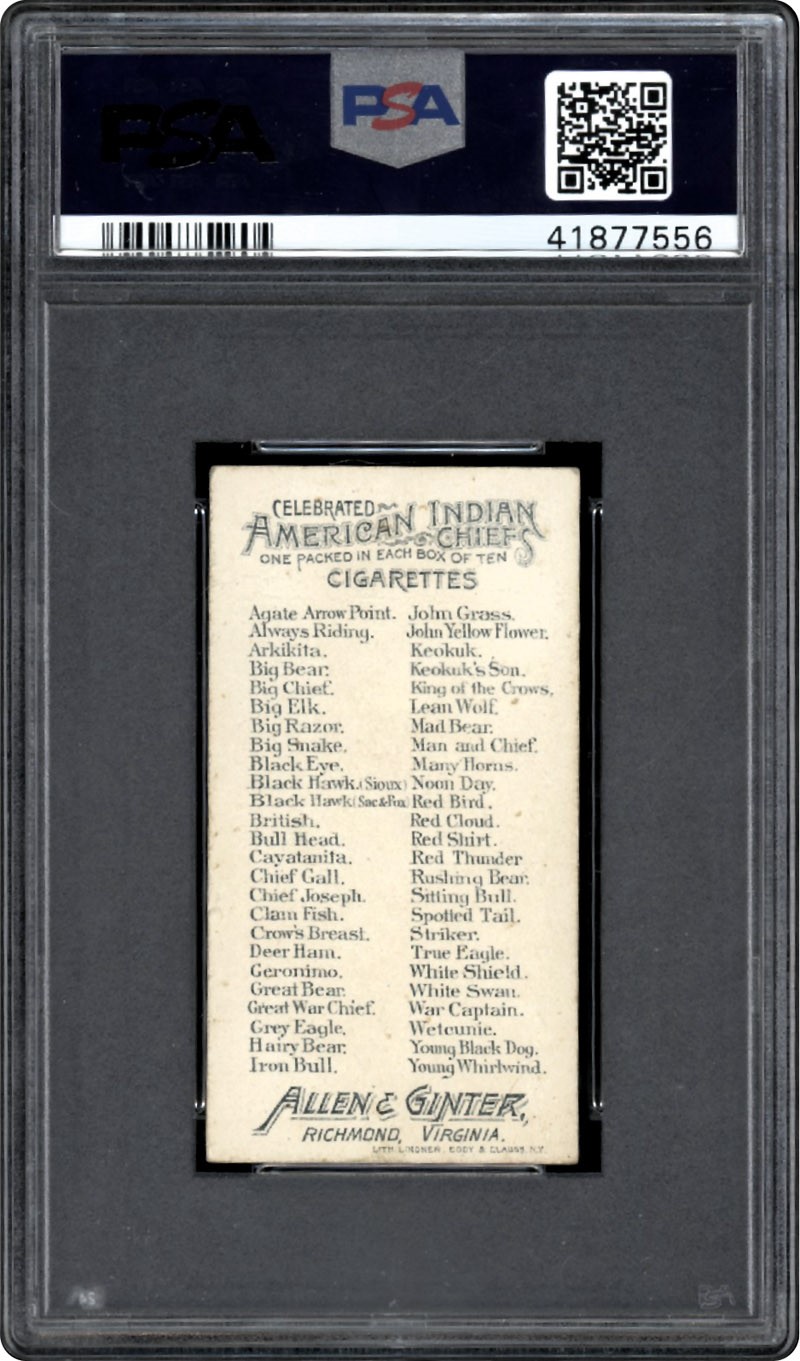 PSA
PSA
41877556
CELEBRATED
AMERICAN INDIAN
CHIEFS
ONE PACKED IN EACH BOX OF TEN
CIGARETTES
Agate Arrow Point.
Always Riding.
Arkikita.
Big Bear.
Big Chief.
Big Elk.
Big Razor.
Big Snake.
Black Eye.
Black Hawk.(Sioux)
Black Hawk(Sac&Fox)
British.
Bull Head.
Cayatanita.
Chief Gall.
Chief Joseph.
Clam Fish.
Crow's Breast.
Deer Ham.
Geronimo.
Great Bear.
Great War Chief.
Grey Eagle.
Hairy Bear.
Iron Bull.
John Grass.
John Yellow Flower.
Keokuk.
Keokuk's Son.
King of the Crows.
Lean Wolf.
Mad Bear.
Man and Chief.
Many Horns.
Noon Day.
Red Bird.
Red Cloud.
Red Shirt.
Red Thunder
Rushing Bear.
Sitting Bull.
Spotted Tail.
Striker.
True Eagle.
White Shield.
White Swan.
War Captain.
Wetcunie.
Young Black Dog.
Young Whirlwind.
ALLEN & GINTER,
RICHMOND, VIRGINIA.
LITH. LINDNER, EDDY & CLAUSS, N.Y.
PSA